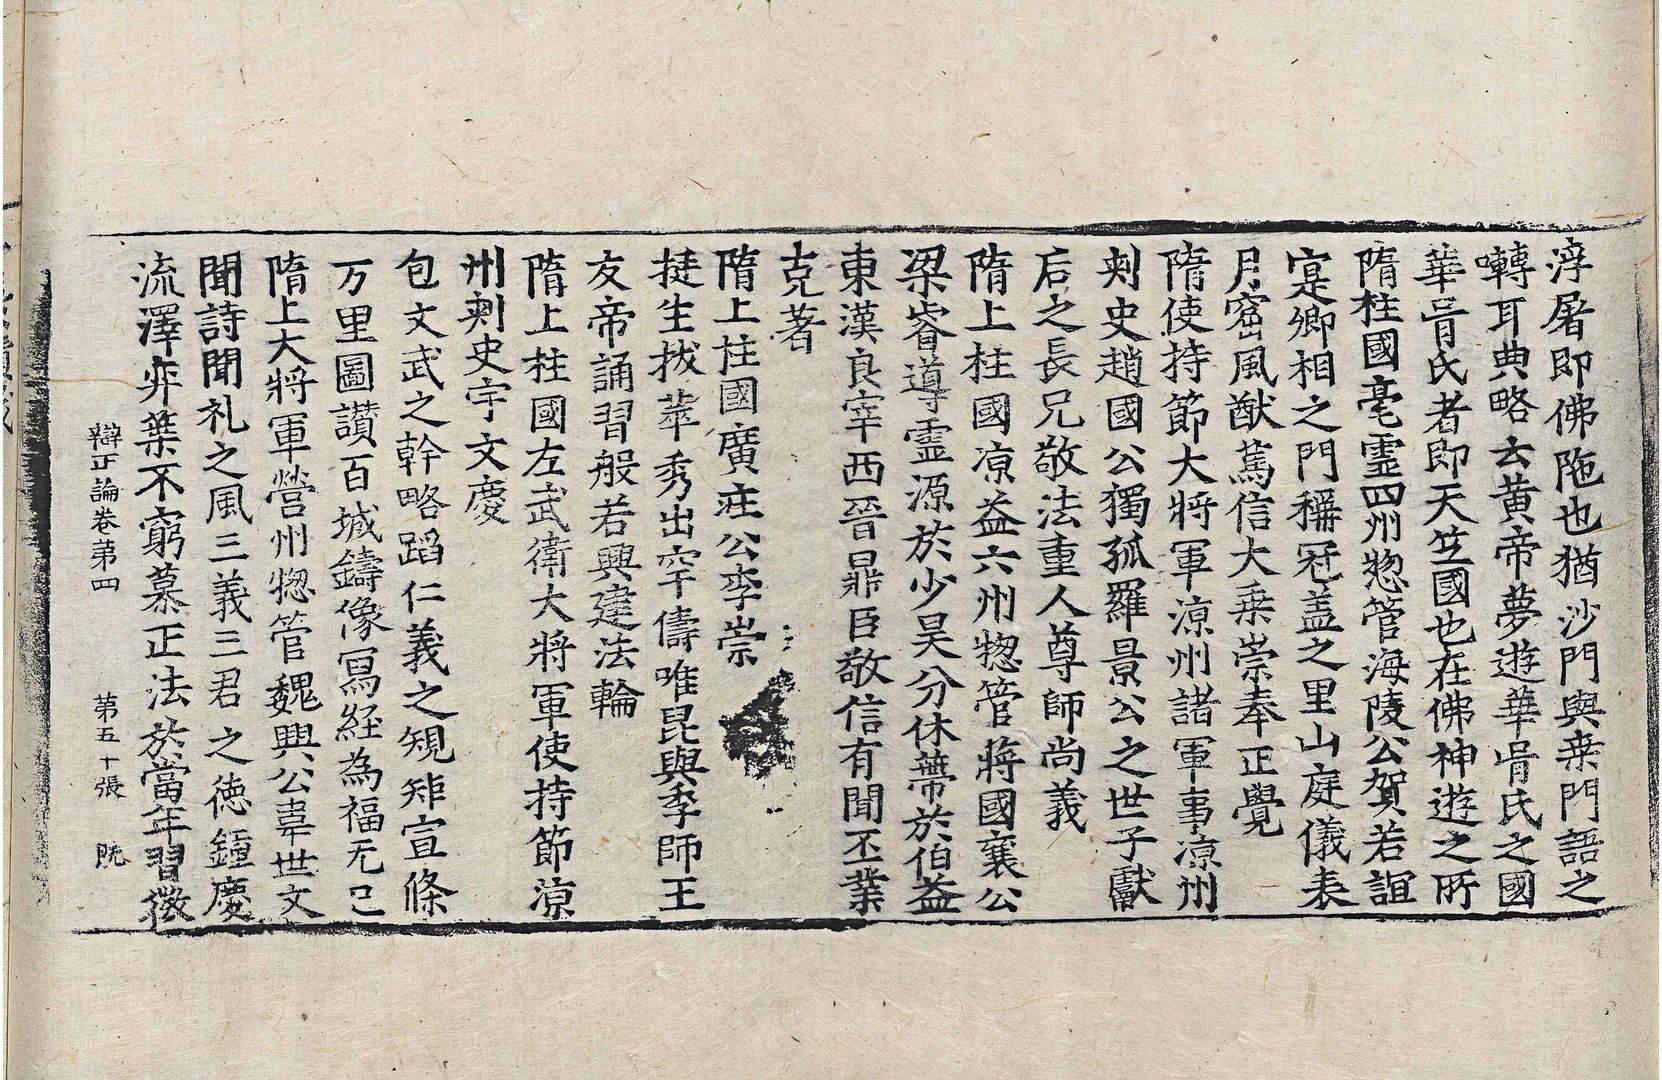 浮屠即佛陁也猶沙門與桒門語之
囀耳典略云黃帝夢遊華胥氏之國
華胥氏者即天竺國也在佛神遊之所
隋柱國亳靈四州惣管海陵公賀若誼
寔卿相之門稱冠盖之里山庭儀表
月窟風猷篤信大乗崇奉正覺
隋使持節大將軍涼州諸軍事涼州
刺史趙國公獨孤羅景公之世子獻
后之長兄敬法重人尊師尚義
隋上柱國涼益六州惣管蔣國襄公
梁睿導靈源於少昊分休蔕於伯益
東漢良宰西晉鼎臣敬信有聞丕業
克著
隋上柱國廣莊公李崇
挺生拔萃秀出罕儔唯昆與季師王
友帝誦習般若興建法輪
隋上柱國左武衛大將軍使持節涼
州刺史宇文慶
包文武之幹略蹈仁義之規矩宣條
万里圖讃百城鑄像寫経為福无已
隋上大將軍營州惣管魏興公韋世文
聞詩聞礼之風三義三君之徳鍾慶
流澤弈葉不窮慕正法於當年習微
辯正論卷第四 第五十張